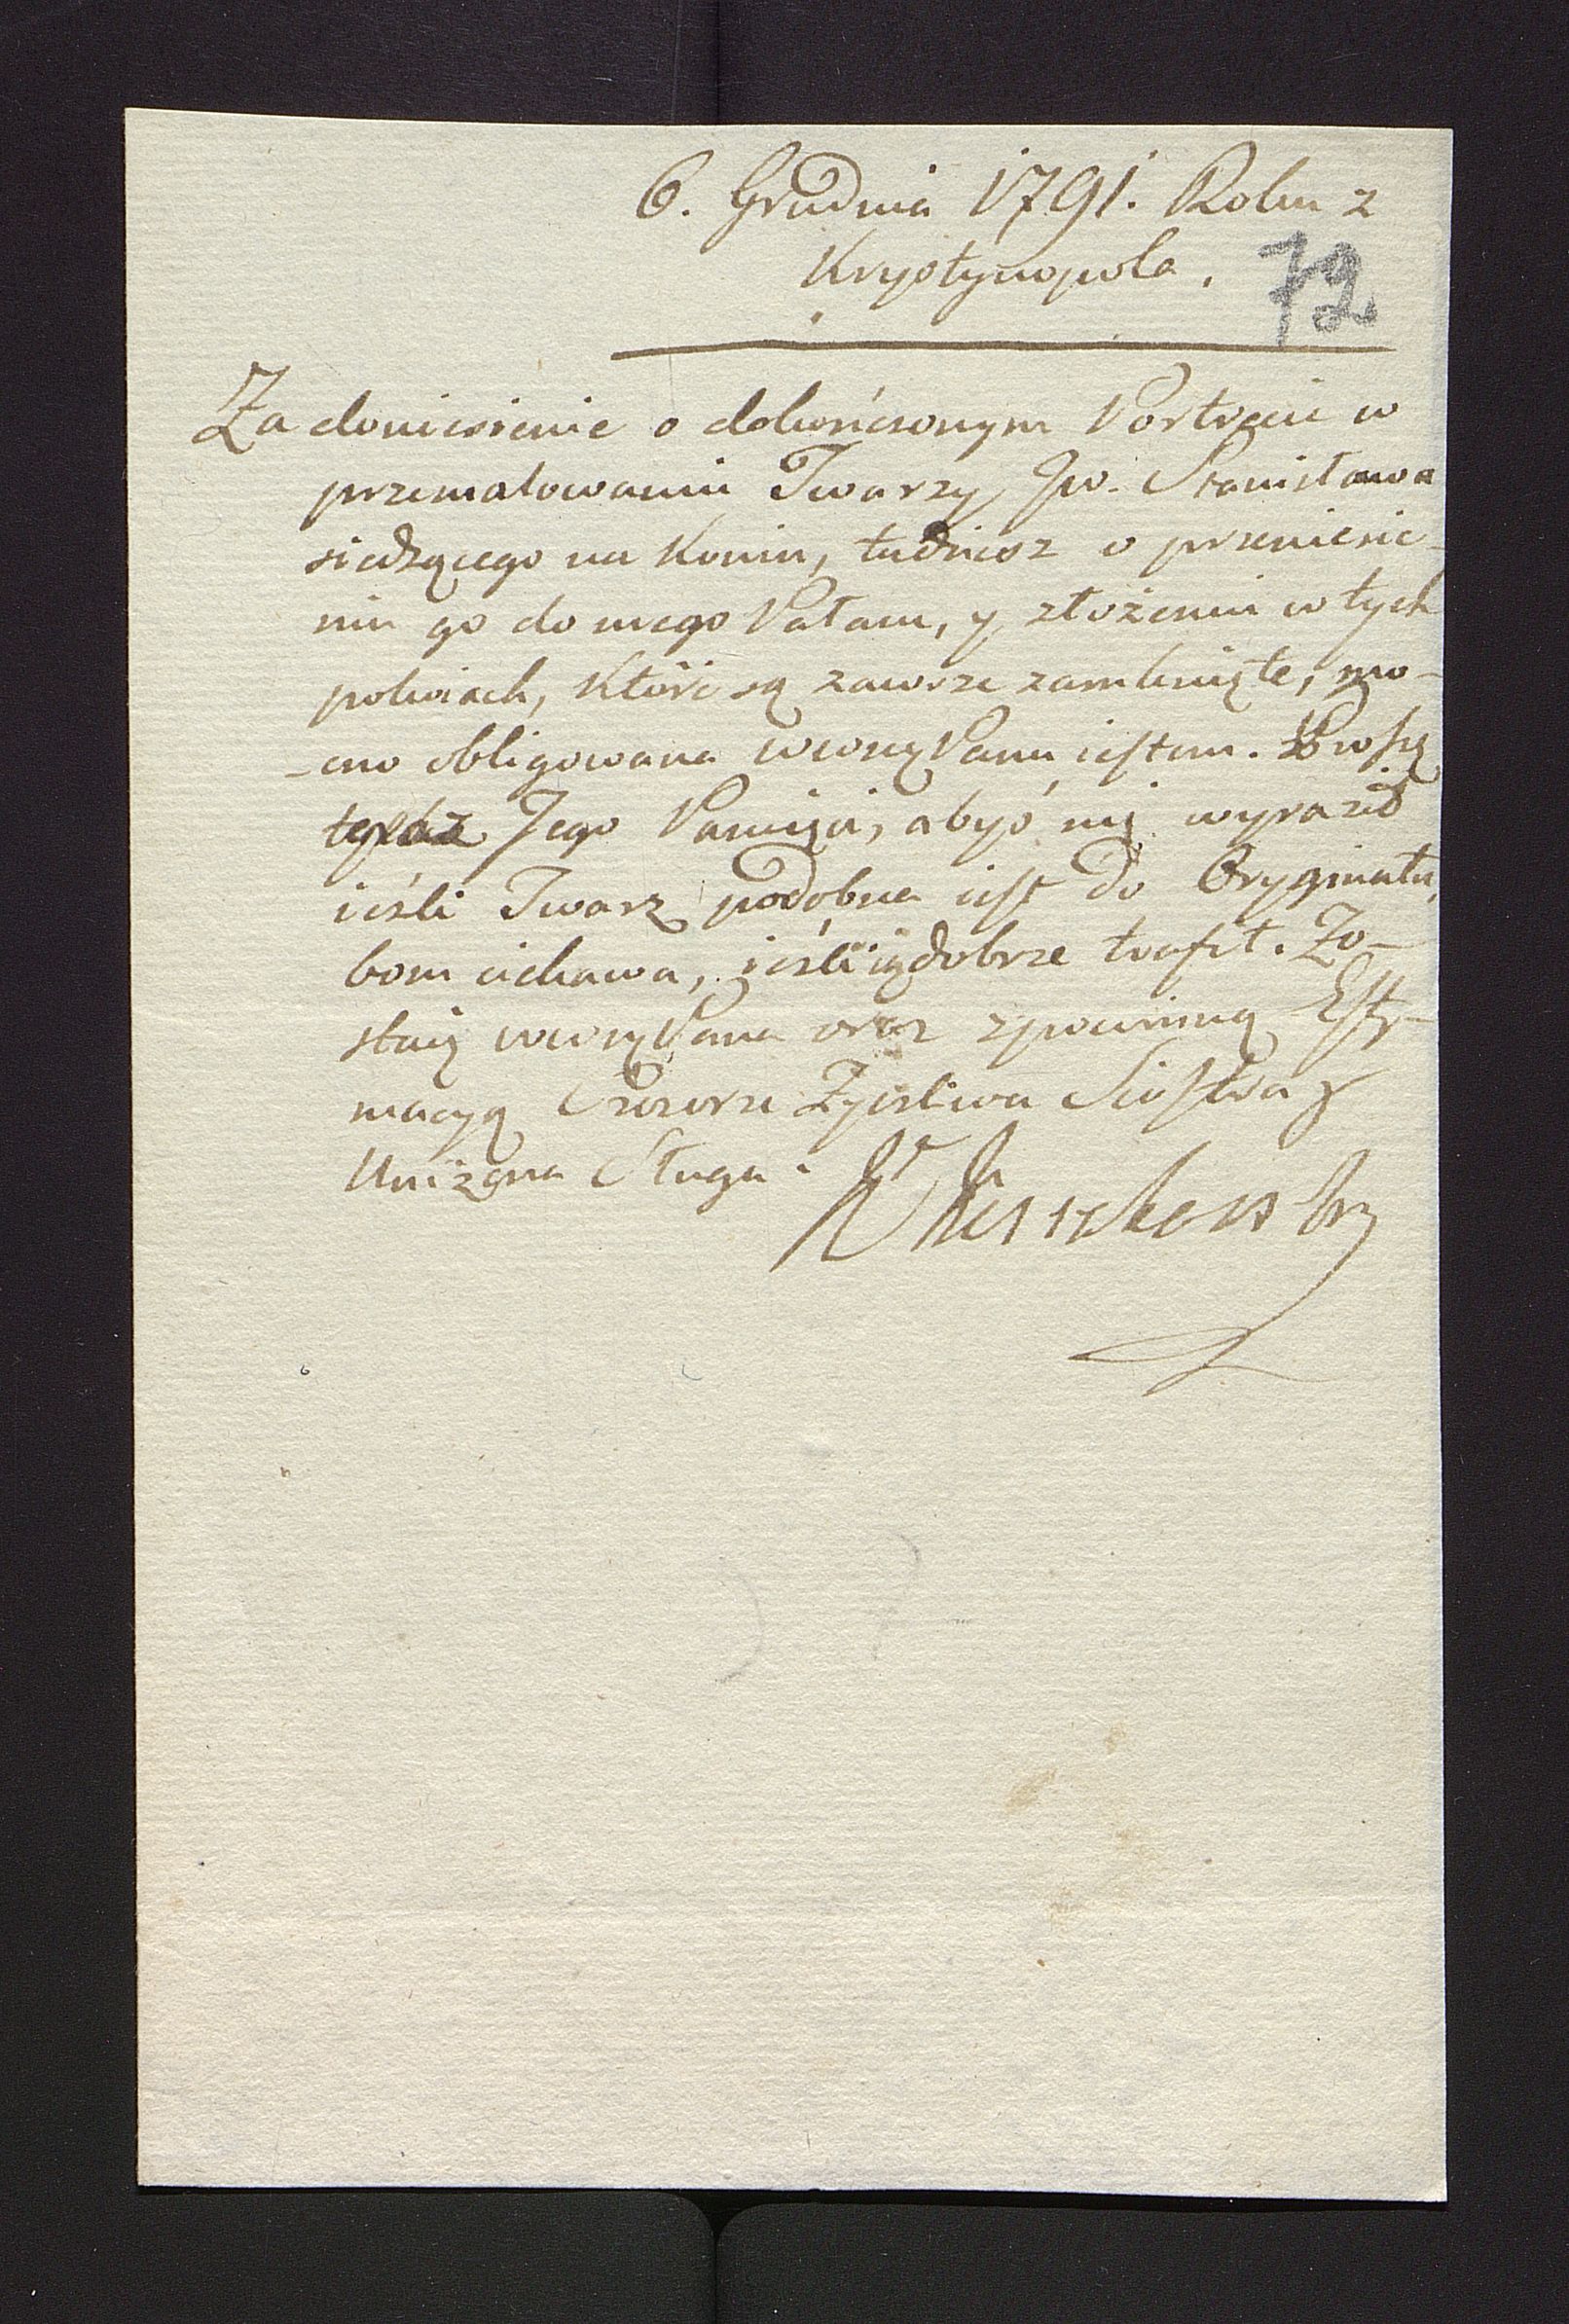 6. Grudnia 1791. Roku z
Krystynopola.
72
Za doniesienie o dokończonym Portrecie w
przemalowaniu Twarzy Jw. Stanisława
siedzącego na Koniu, tudziesz o przeniesie-
niu go do mego Pałacu, y złożeniu w tych
pokoiach, które są zawsze zamknięte, mo-
-cno obligowana wwmPanu iestem. Proszę
teraz Jego Pamięci, abyś mi wyraził
ieśli Twarz podobna iest do Oryginału,
bom ciekawa, ieśli ią dobrze trafił. Zo-
staię wwmPana oraz z powinną Esty-
macyą Szczerze Życzliwa Siostra y
Uniżona Sługa.